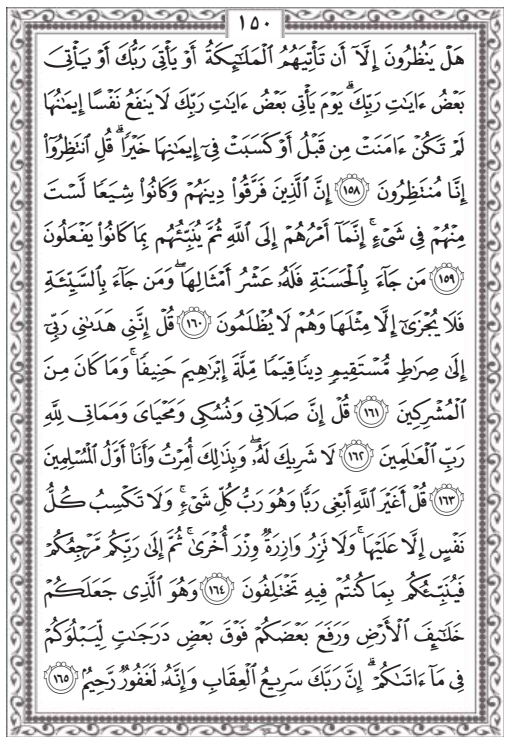 ١٥٠
هَلْ يَنظُرُونَ إِلَّآ أَن تَأْتِيَهُمُ ٱلْمَلَٰٓئِكَةُ أَوْ يَأْتِىَ رَبُّكَ أَوْ يَأْتِىَ
بَعْضُ ءَايَٰتِ رَبِّكَۗ يَوْمَ يَأْتِى بَعْضُ ءَايَٰتِ رَبِّكَ لَا يَنفَعُ نَفْسًا إِيمَٰنُهَا
لَمْ تَكُنْ ءَامَنَتْ مِن قَبْلُ أَوْ كَسَبَتْ فِىٓ إِيمَٰنِهَا خَيْرًاۗ قُلِ ٱنتَظِرُوٓا۟
إِنَّا مُنتَظِرُونَ ١٥٨ إِنَّ ٱلَّذِينَ فَرَّقُوا۟ دِينَهُمْ وَكَانُوا۟ شِيَعًا لَّسْتَ
مِنْهُمْ فِى شَىْءٍۚ إِنَّمَآ أَمْرُهُمْ إِلَى ٱللَّهِ ثُمَّ يُنَبِّئُهُم بِمَا كَانُوا۟ يَفْعَلُونَ
١٥٩ مَن جَآءَ بِٱلْحَسَنَةِ فَلَهُۥ عَشْرُ أَمْثَالِهَاۖ وَمَن جَآءَ بِٱلسَّيِّئَةِ
فَلَا يُجْزَىٰٓ إِلَّا مِثْلَهَا وَهُمْ لَا يُظْلَمُونَ ١٦٠ قُلْ إِنَّنِى هَدَىٰنِى رَبِّىٓ
إِلَىٰ صِرَٰطٍ مُّسْتَقِيمٍ دِينًا قِيَمًا مِّلَّةَ إِبْرَٰهِيمَ حَنِيفًاۚ وَمَا كَانَ مِنَ
ٱلْمُشْرِكِينَ ١٦١ قُلْ إِنَّ صَلَاتِى وَنُسُكِى وَمَحْيَاىَ وَمَمَاتِى لِلَّهِ
رَبِّ ٱلْعَٰلَمِينَ ١٦٢ لَا شَرِيكَ لَهُۥۖ وَبِذَٰلِكَ أُمِرْتُ وَأَنَا۠ أَوَّلُ ٱلْمُسْلِمِينَ
١٦٣ قُلْ أَغَيْرَ ٱللَّهِ أَبْغِى رَبًّا وَهُوَ رَبُّ كُلِّ شَىْءٍۚ وَلَا تَكْسِبُ كُلُّ
نَفْسٍ إِلَّا عَلَيْهَاۚ وَلَا تَزِرُ وَازِرَةٌ وِزْرَ أُخْرَىٰۚ ثُمَّ إِلَىٰ رَبِّكُم مَّرْجِعُكُمْ
فَيُنَبِّئُكُم بِمَا كُنتُمْ فِيهِ تَخْتَلِفُونَ ١٦٤ وَهُوَ ٱلَّذِى جَعَلَكُمْ
خَلَٰٓئِفَ ٱلْأَرْضِ وَرَفَعَ بَعْضَكُمْ فَوْقَ بَعْضٍ دَرَجَٰتٍ لِّيَبْلُوَكُمْ
فِى مَآ ءَاتَىٰكُمْۗ إِنَّ رَبَّكَ سَرِيعُ ٱلْعِقَابِ وَإِنَّهُۥ لَغَفُورٌ رَّحِيمٌۢ ١٦٥